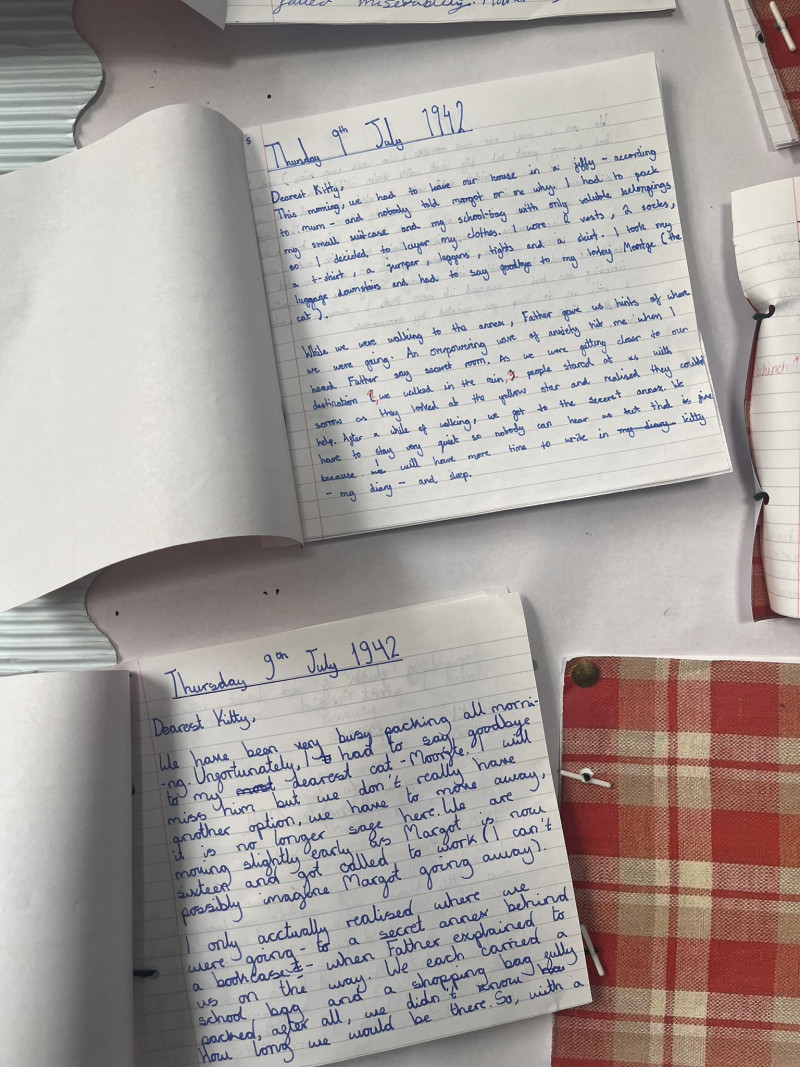 failed miserably.
Thursday 9th July 1942
Dearest Kitty,
This morning, we had to leave our house in a jiffy - according
to mum - and nobody told margot or me why. I had to pack
my small suitcase and my school-bag with only valuble belongings
so I decided to layer my clothes. I wore vests, 2 socks,
a t-shirt, a jumper, leggins, tights and a skirt. I took my
luggage downstairs and had to say goodbye to my lovley Mortge (the
cat).
While we were walking to the annex, Father gave us hints of where
we were going. An overpowering wave of anxiety hit me when I
heard Father say secret room. As we were getting closer to our
destination, we walked in the rain, people stared at us with
sorrow as they looked at the yellow star and realised they couldnt
help. After a while of walking, we got to the secret annex. We
have to stay very quiet so nobody can hear us but that is fine
because we will have more time to write in my diary kitty
- my diary - and sleep.
Thursday 9th July 1942
Dearest Kitty,
We have been very busy packing all morni-
-ng. Unfortunately, I had to say goodbye
to my most dearest cat - Moortje. I will
miss him but we don't really have
another option, we have to move away,
it is no longer safe here. We are
moving slightly early as Margot is now
sixteen and got called to work (I can't
possibly imagine Margot going away).
I only acctually realised where we
were going - to a secret annex behind
a bookcase - when Father explained to
us on the way. We each carried a
school bag and a shopping bag fully
packed, after all, we didn't know
how long we would be there. So, with a